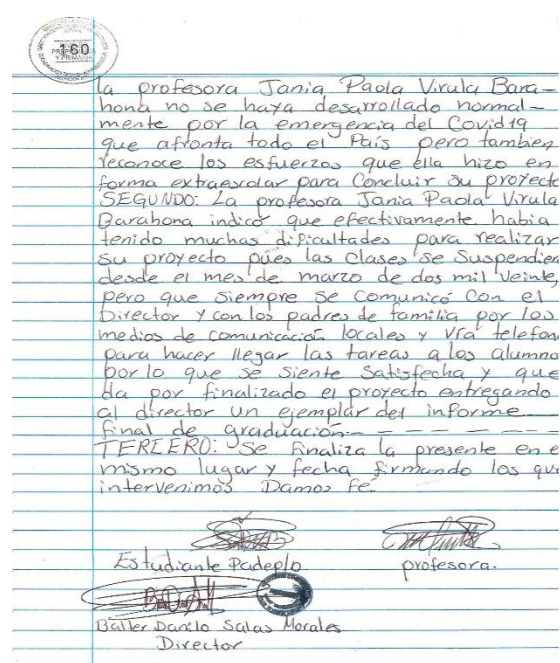 160
la profesora Jania Paola Virula Bara-
hona no se haya desarrollado normal-
mente por la emergencia del Covid19
que afronta todo el País pero tambien
reconoce los esfuerzos que ella hizo en
forma extraescolar para Concluir su proyecto
SEGUNDO: La profesora Jania Paola Virula
Barahona indicó que efectivamente habia
tenido muchas dificultades para realizar
su proyecto púes las Clases se Suspendier
desde el mes de marzo de dos mil veinte,
pero que siempre se Comunicó Con el
Director y con los padres de familia por los
medios de comunicación locales y Vía telefon
para hacer llegar las tareas a los alumno
por lo que se siente Satisfecha y que
da por finalizado el proyecto entregando
al director un ejemplar del informe
final de graduación. - - - - -
TERCERO: Se finaliza la presente en e
mismo lugar y fecha firmando los que
intervenimos Damos Fé.
Estudiante Padeplo profesora.
Balter Danilo Salas Morales
Director